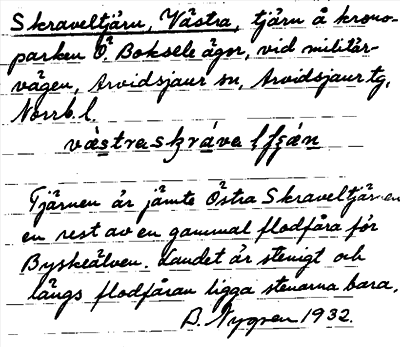 Skraveltjärn, Västra, tjärn å krono-
parken Ö. Boksele ägor, vid militär-
vägen, Arvidsjaur sn, Arvidsjaur tg,
Norrb. l.
västra skrávelţşán
Tjärnen är jämte Östra Skraveltjärnen
en rest av en gammal flodfåra för
Byskeälven. Landet är stenigt och
längs flodfåran ligga stenarna bara.
D. Nygren 1932.